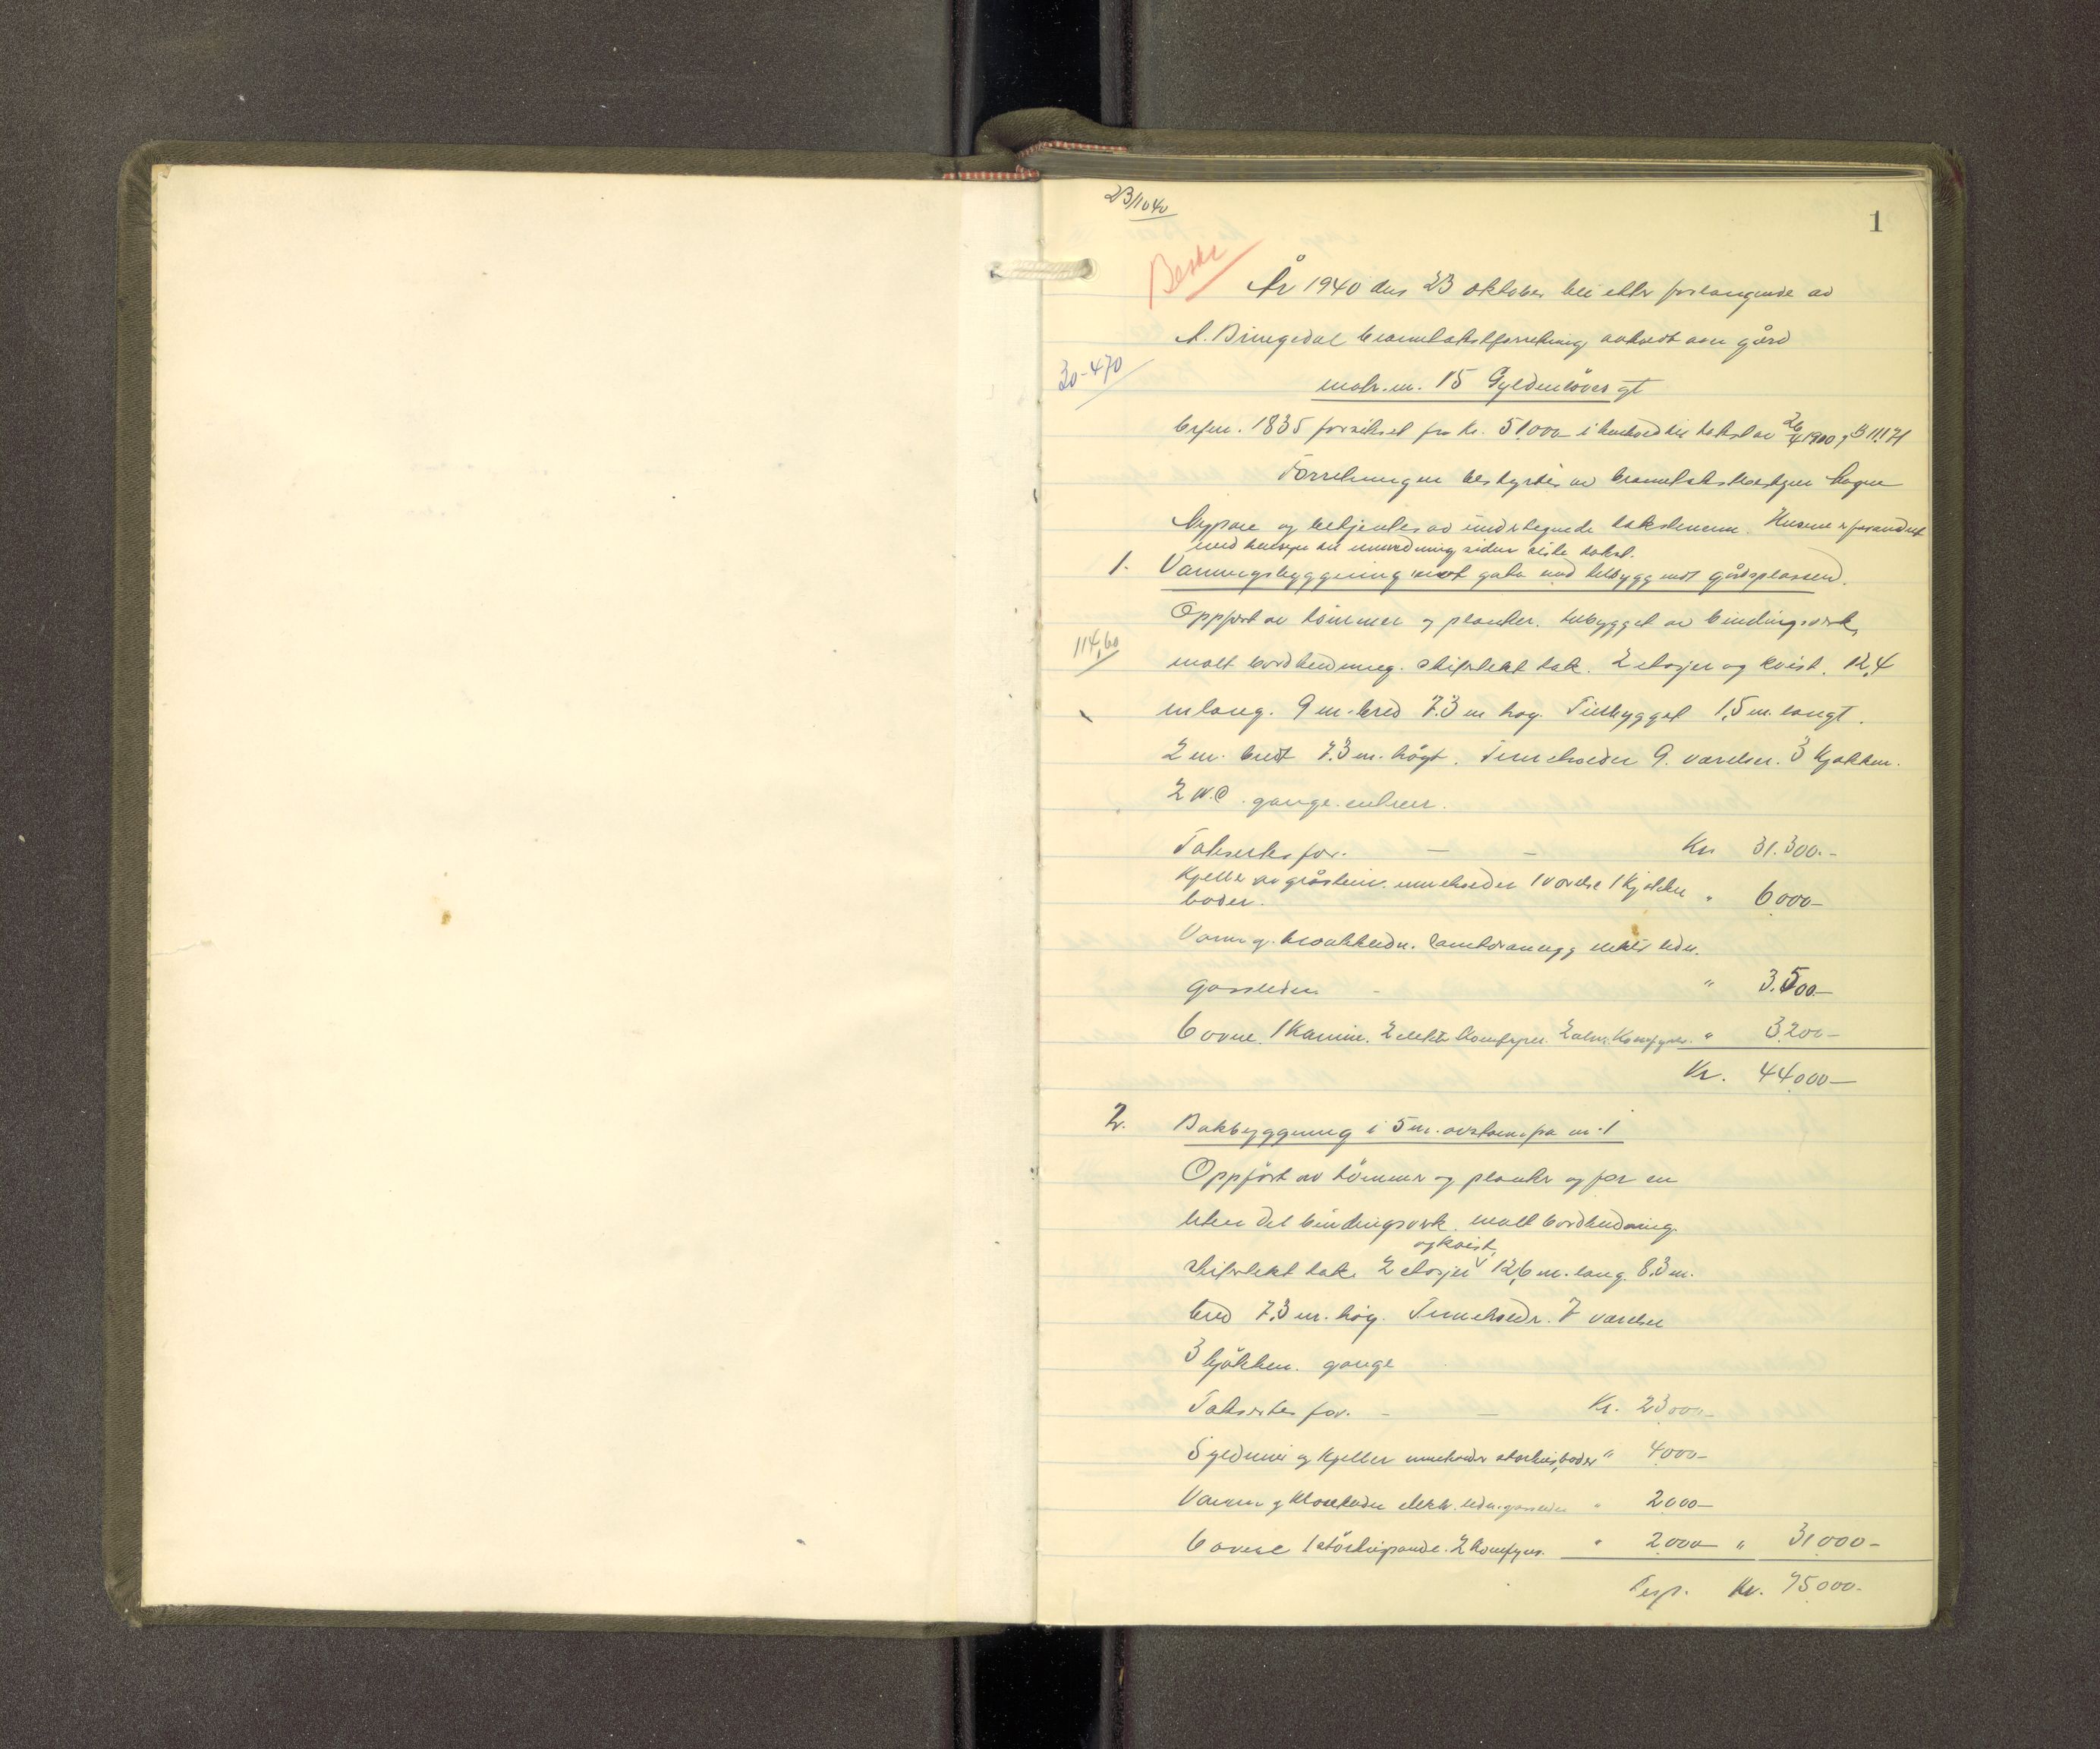 23/10 40
1
Beskr
År 1940 den 23 oktober ble etter forlangende av
A. Bringedal branntakstforretning avholdt over gård
30-470
matr. nr. 15 Gyldenløves gt
br.fnr. 1835 forsikret for kr. 51.000 i henhold til takst av 26/4 1920, B 11.171
Forretningen bestyrtes av branntakstbestyrer Aagve
Nypare og betjentes av undertegnede takstmenn. Husene er forandret
med hensyn til innredning siden siste takst.
1. Våningsbyggning mot gata med tilbygg mot gårdsplassen.
Oppført av tömmer og planker. tilbygget av bindingsverk,
114,60
malt bordkledning. skiftekt tak. 2 etasjer og kvist. 12,4
m lang. 9 m. bred 7.3 m høg. Tilbygget 1,5 m. langt.
2 m. bredt 7.3 m. högt. Inneholder 9. værelser. 3 kjøkken.
2 W.C. gange. entreer.
Takseres for. — — Kr 31.300.-
Kjeller av gråstein. inneholder 1 værelse 1 kjøkken " 6000-
boder.
Vann og kloakkledn. sanitæranlegg elektr ledn.
gassledn - " 3.500-
6 ovne. 1 kamin. 2 elektr. komfyrer. 2 alm. komfyrer. " 3200-
Kr. 44000-
2. Bakbyggning i 5 m. avstann fra nr. 1
Oppført av tömmer og planker og for en
liten del bindingsverk. malt bordkledning
og kvist,
skiftekt tak. 2 etasjer 12,6 m. lang. 8.3 m.
bred 7.3 m. høg. Inneholdr. 7 værelser
3 kjökken. gange
Takseres for. - — Kr. 23000-
Syldmur og kjeller inneholder störhus, boder " 4000-
Vann og kloakkledn elektr. ledn. gassledn " 2000-
6 ovne 1 störhuspanne. 2 komfyrer. " 2000- " 31000-
Tsp. Kr. 75000.-